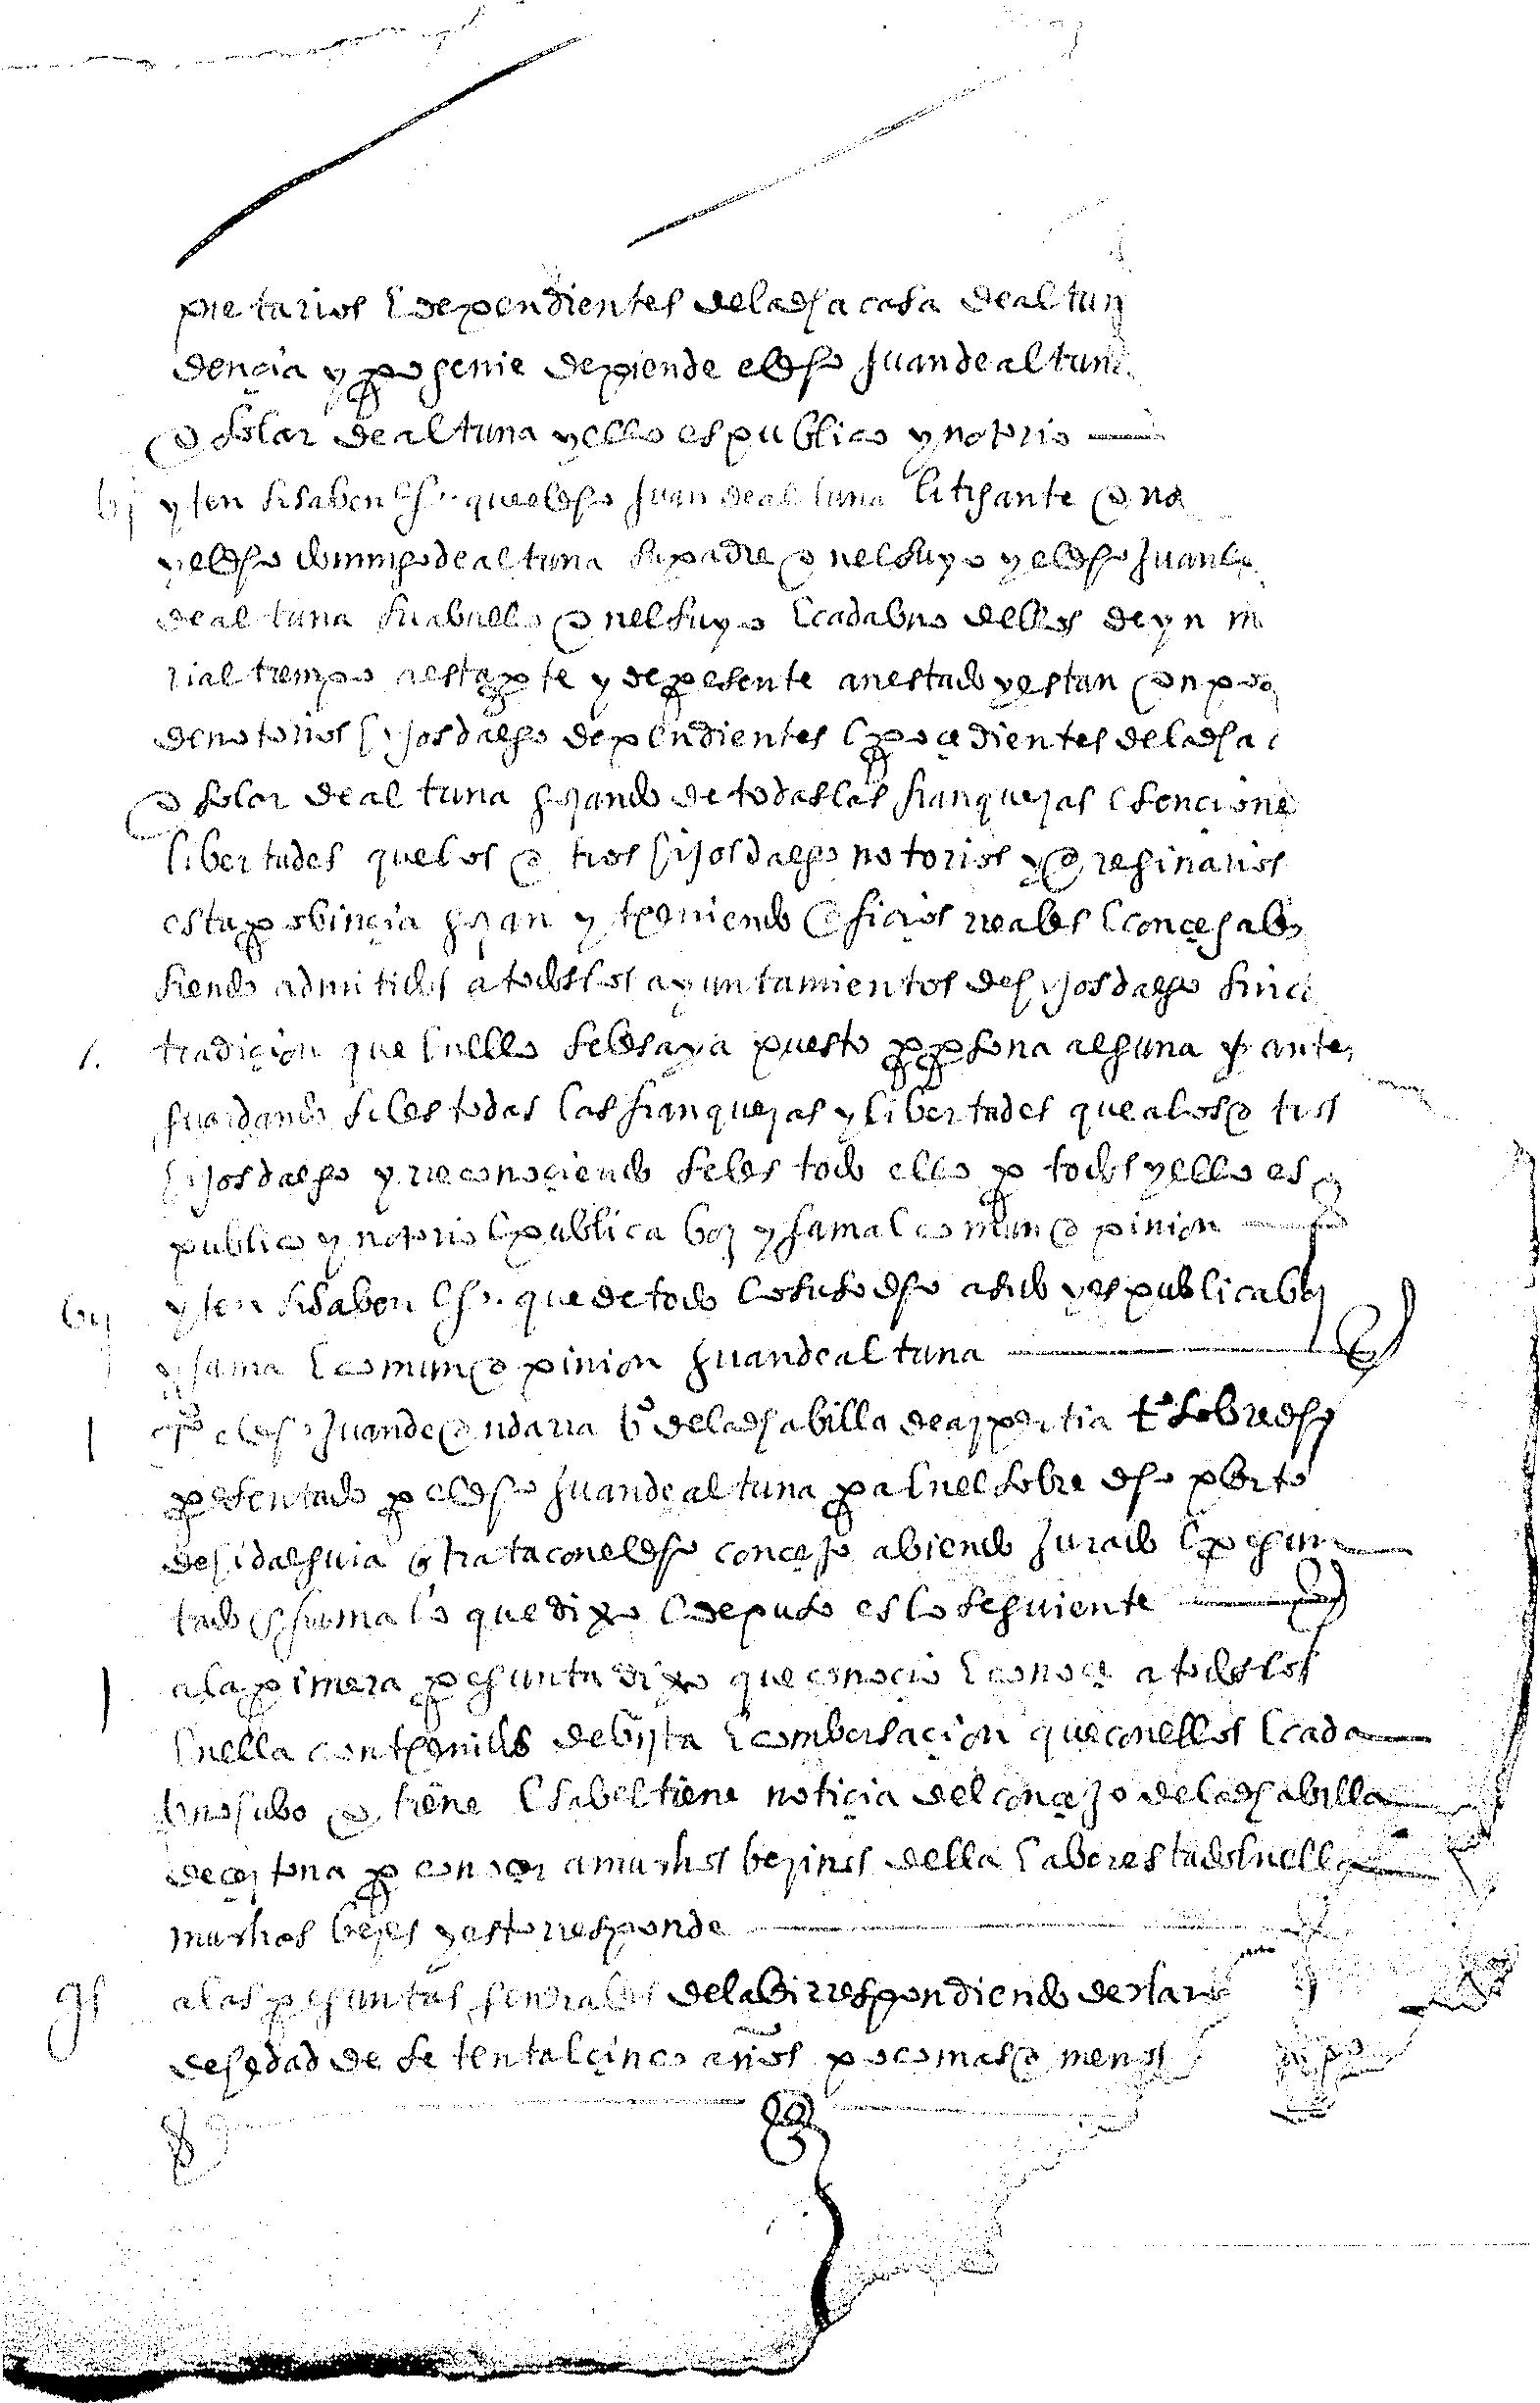 pietarios E dependientes de la dha casa de altun
dençia y progenie depiende el dho Juan de altuna
o solar de altuna y ello es publico y notorio
bj yten si saben Ehª que el dho Juan de altuna litigante con
y el dho domingo de altuna su padre o nel suyo y el dho Juan
de altuna su abuelo o nel suyo E cada uno dellos de yn m
rial tiempo a esta pte y de presente an estado y estan en po
de notorios hijos dalgo dependientes E proçedientes de la dha
o solar de altuna gozando de todas las franquezas Esencione
libertades que los otros hijos dalgo notorios y oreginarios
esta probinçia gozan y teniendo ofiçios reales E conçegales
siendo admitidos a todos los ayuntamientos de hijos dalgo sin
tradiçion que En ello se les aya puesto por persona alguna antes
guardando se les todas las franquezas y libertades que a los otros
hijos dalgo y rreconoçiendo se les todo ello por todos y ello es
publico y notorio E publica boz y fama E comun opinion
bij yten si saben Ehª que de todo lo suso dho a sido y es publica boz
y fama E comun opinion Juan de altuna
el dho Juan de ondarra bº de la dha billa de azpeitia tº sobre dho
presentado por el dho Juan de altuna para En el sobre dho pleito
de hidalguia que trata con el dho conçejo abiendo Jurado E pregun
tado En suma lo que dixo E depuso es lo seguiente
a la primera pregunta dixo que conoçio E conoçe a todos los
En ella contenidos de bista E combersaçion que con ellos E cada
uno hubo o tiene E sabe E tiene notiçia del conçejo de la dha billa
de çeztona por conoçer a muchos bezinos della E aber estado En ella
muchas bezes y esto rresponde
gs a las preguntas generales de la ley rrespondiendo declaro
de hedad de setenta E çinco años poco mas o menos